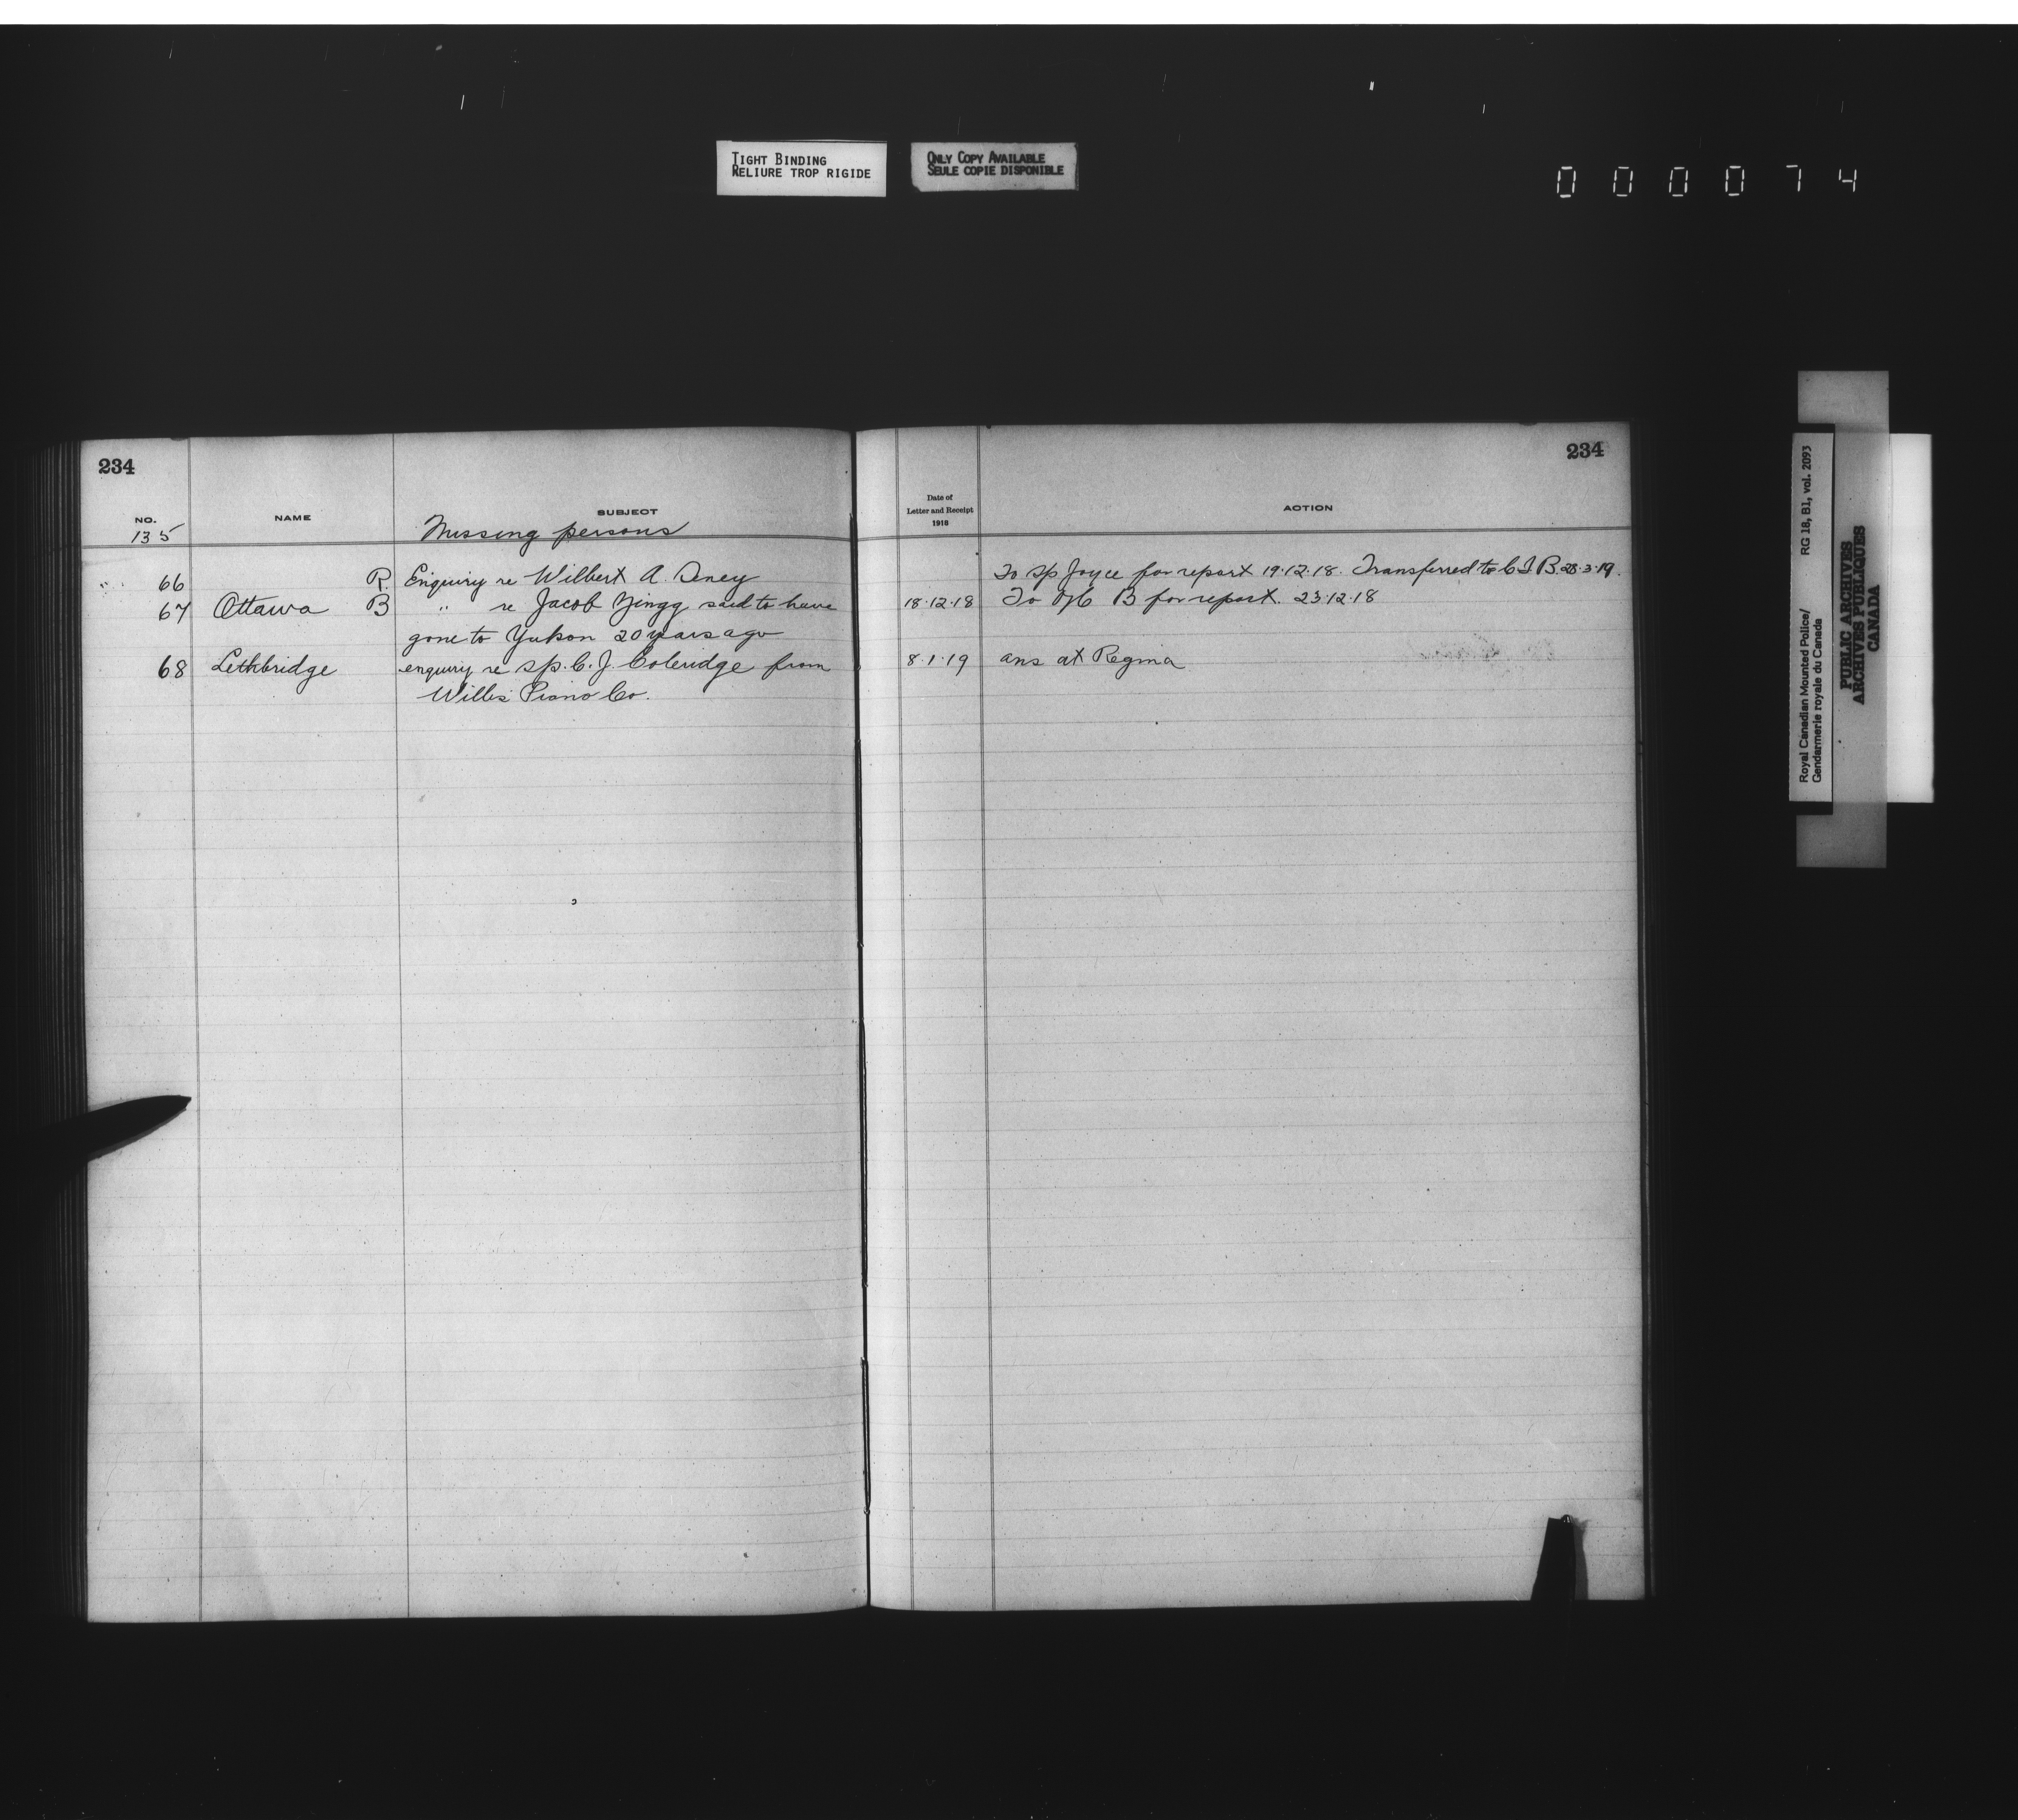 TIGHT BINDING
RELIURE TROP RIGIDE
ONLY COPY AVAILABLE
SEULE COPIE DISPONIBLE
000074
234
234
NO.
NAME
SUBJECT
Date of
Letter and Receipt
1918
ACTION
135
Missing persons
66 R. Enquiry re Wilbert A. To Sp Joyce for report 19.12.18. Transferred to C I. B. 28.3.19.
67 Ottawa B " re Jacob Zingg said to have 18.12.18 To O/C B for report. 23.12.18
gone to Yukon 20 years ago
68 Lethbridge enquiry re Sp. C. J. Coleridge from 8.1.19 ans at Regina
Willis Piano Co.
Royal Canadian Mounted Police/ RG 18, B1, vol. 2093
Gendarmerie royale du Canada
PUBLIC ARCHIVES
ARCHIVES PUBLIQUES
CANADA